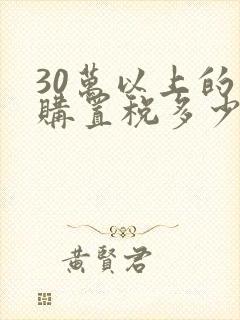 30萬以上的
購置税多少
黄賢君